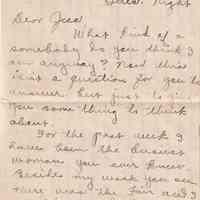 Night
Dear
What kind of a
somebody do you think I
am anyway? Now this
isn't a question for you to
answer but just to
you some thing to think
about.
For the past week I
have been the busiest
woman you ever knew.
Besides my work you see
there was the Fair and I